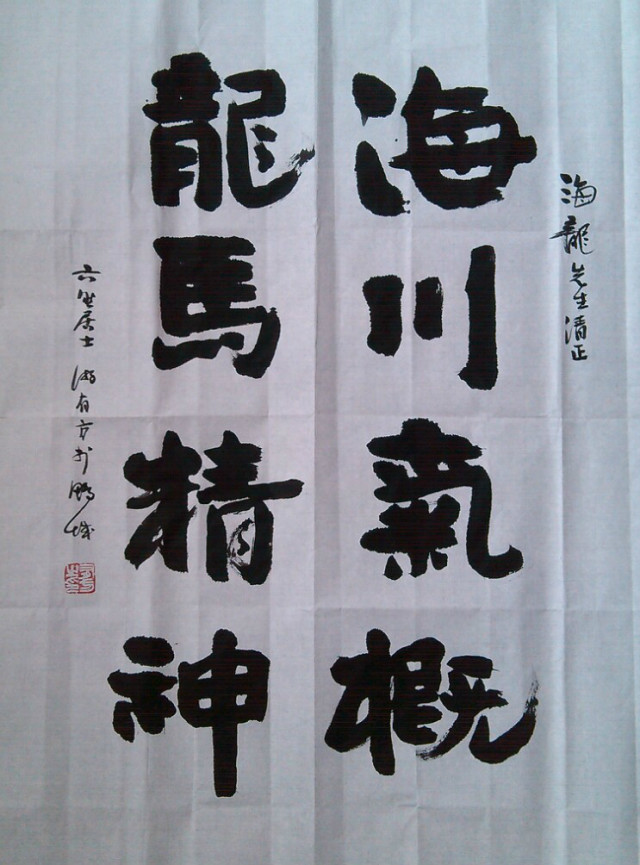 海龍先生清正
海川氣概
龍馬精神
六坐居士 游有方於鵬城